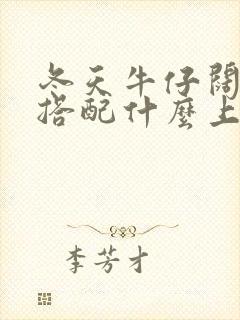 冬天牛仔闊
搭配什麼上
李芳才